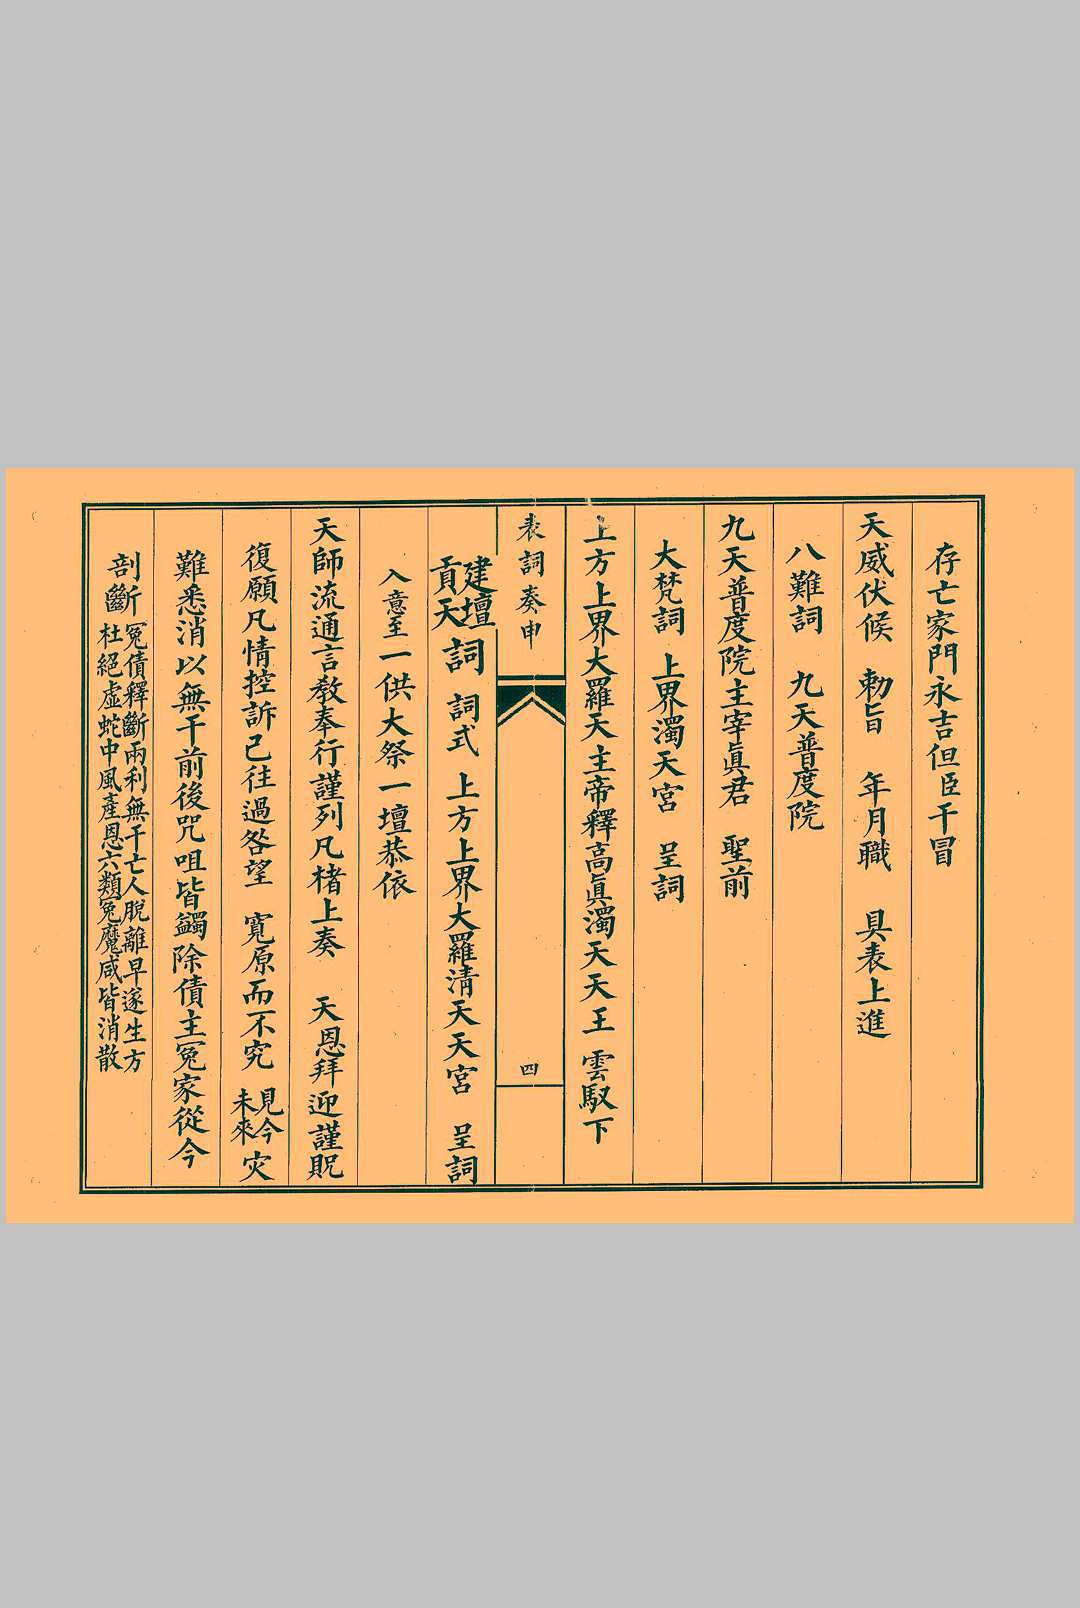 存亡家門永吉但臣干冒
天威伏候　勅旨　年月職　具表上進
八難詞　九天普度院
九天普度院主宰眞君　聖前
大梵詞　上界濁天宮　呈詞
上方上界大羅天主帝釋高眞濁天天王　雲馭下
表詞奏申　四
建壇貢天詞　詞式　上方上界大羅清天天宮　呈詞
入意至一供大祭一壇恭依
天師流通言教奉行謹列凡楮上奏　天恩拜迎謹貺
復願凡情控訴已往過咎望　寬原而不究　見今未來灾
難悉消以無干前後咒咀皆蠲除債主冤家從今
剖斷　冤債釋斷兩利無干亡人脫離早遂生方
杜絕虛蛇中風產恩六類冤魔咸皆消散